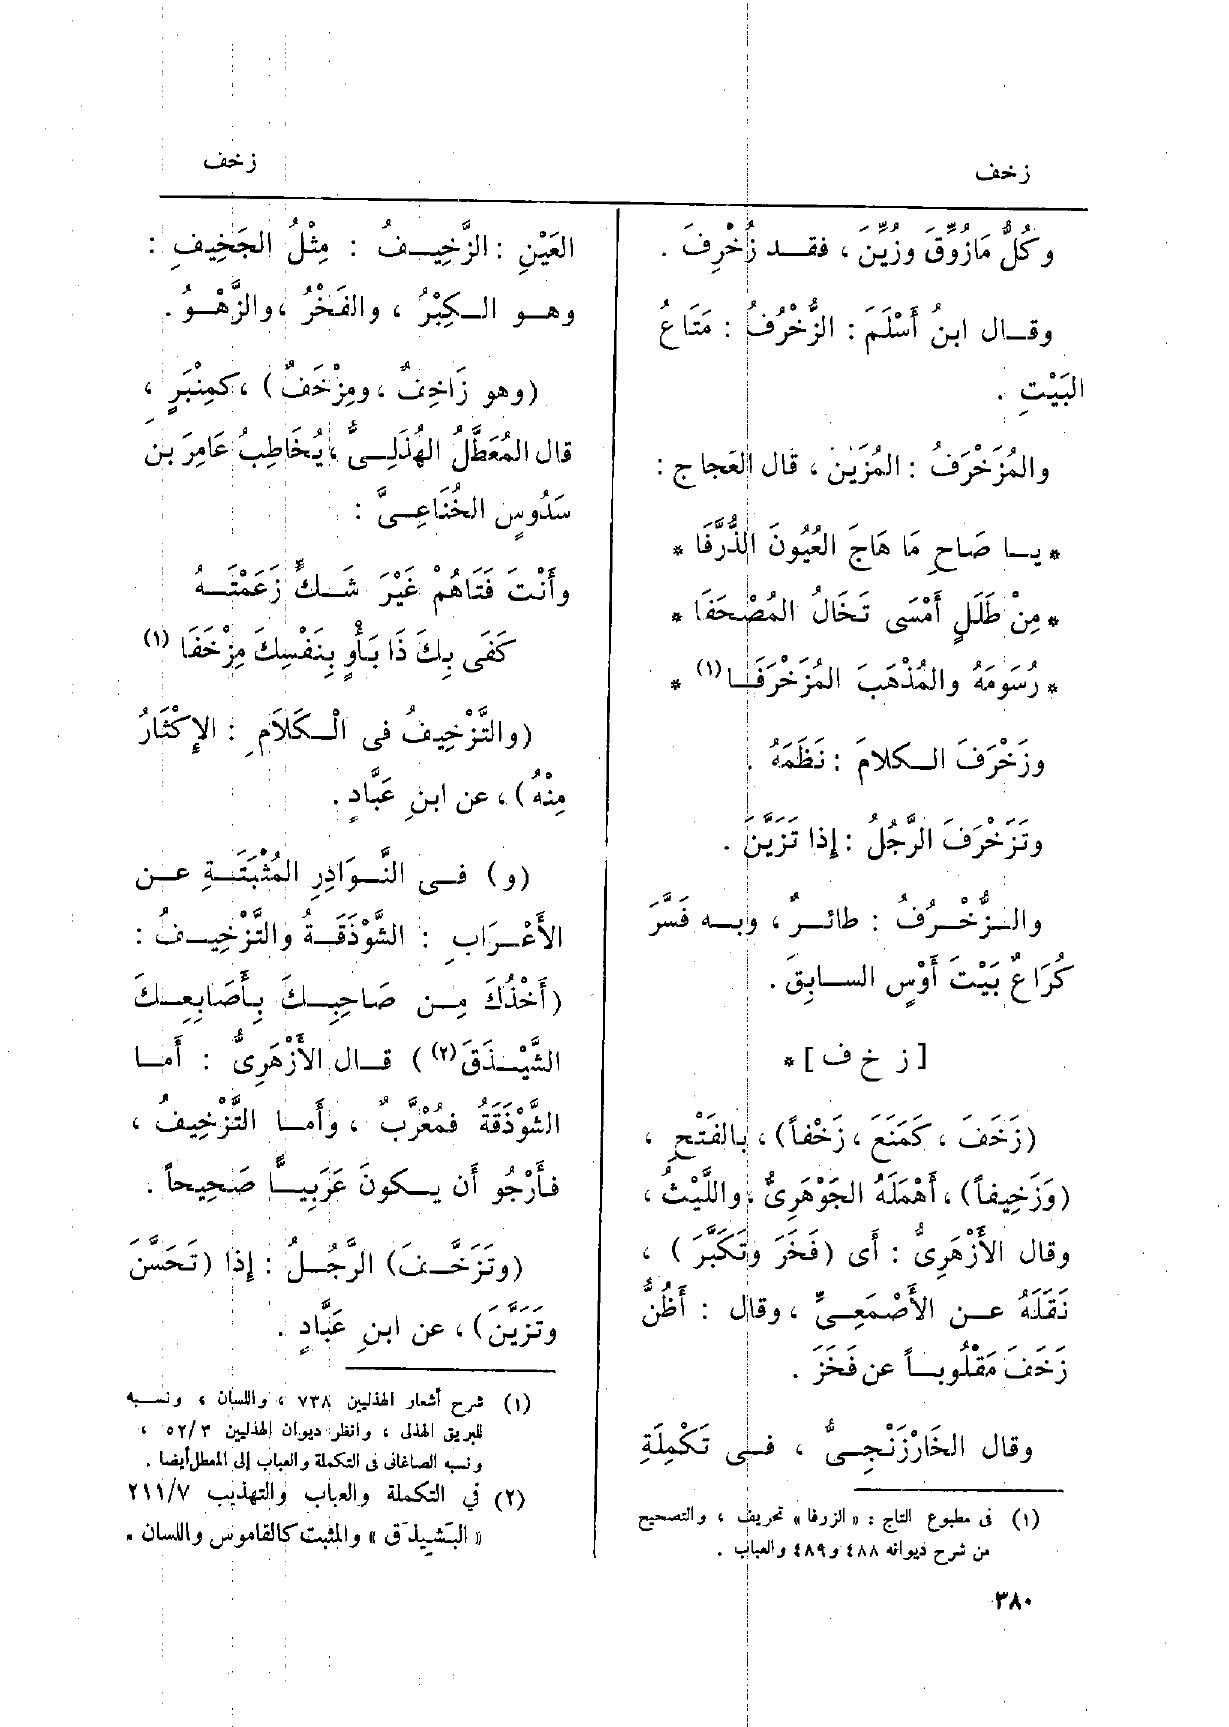 زخف
زخف
وكُلُّ مَازُوِّقَ وزُيِّنَ ، فقـد زُخْرِفَ .
وقـال ابنُ أَسْلَمَ : الزُّخْرُفُ : مَتَاعُ
البَيْتِ .
والمُزَخْرَفُ : المُزَيَّن ، قال العَجاج :
* يـا صَاحِ مَا هَاجَ العُيُونَ الذُّرَّفَا *
* مِنْ طَلَلٍ أَمْسَى تَخَالُ المُصْحَفَا *
* رُسُومَهُ والمُذْهَبَ المُزَخْرَفَـا (١) *
وزَخْرَفَ الـكلامَ : نَظَمَهُ .
وتَزَخْرَفَ الرَّجُلُ : إذا تَزَيَّنَ .
والـزُّخْـرُفُ : طائـرٌ ، وبـه فَسَّرَ
كُرَاعٌ بَيْتَ أَوْسٍ السـابِقَ .
[ ز خ ف ] *
(زَخَفَ ، كَمَنَعَ ، زَخْفاً) ، بالفَتْحِ ،
(وَزَخِيفاً) ، أَهْمَلَهُ الجَوْهَرِىُّ ، واللَّيْثُ ،
وقال الأَزْهَرِىُّ : أَى (فَخَرَ وتَكَبَّرَ ) ،
نَقَلَهُ عـن الأَصْمَعِـىِّ ، وقال : أَظُنُّ
زَخَفَ مَقْلُوبـاً عن فَخَزَ .
وقال الخَارْزَنْجِـىُّ ، فـى تَكْمِلَةِ
(١) فى مطبوع التاج : « الزرفا » تحريف ، والتصحيح
من شرح ديوانه ٤٨٨ و٤٨٩ والعباب .
٣٨٠
العَيْنِ : الزَّخِيـفُ : مِثْلُ الجَخِيفِ :
وهـو الـكِبْرُ ، والفَخْرُ ، والزَّهْـوُ .
(وهو زَاخِفٌ ، ومِزْخَفٌ) ، كمِنْبَرٍ ،
قال المُعَطَّلُ الهُذَلِـىُّ ، يُخَاطِبُ عَامِرَ بن
سَدُوسٍ الخُنَاعِـىَّ :
وأَنْتَ فَتَاهُمْ غَيْرَ شَـكٍّ زَعَمْتَـهُ
كَفَى بِكَ ذَا بَأْوٍ بِنَفْسِكَ مِزْخَفَا (١)
(والتَّزْخِيفُ فى الْـكَلاَمِ : الإِكْثَارُ
مِنْهُ) ، عن ابنِ عَبَّادٍ .
(و) فـى النَّـوَادِرِ المُثْبَتَـةِ عـن
الأَعْـرَابِ : الشَّوْذَقَـةُ والتَّزْخِيـفُ :
(أَخْذُكَ مِـن صَاحِبِـكَ بِأَصَابِعِـكَ
الشَّيْـذَقَ (٢) ) قـال الأَزْهَرِىُّ : أَمـا
الشَّوْذَقَةُ فمُعَرَّبٌ ، وأَمـا التَّزْخِيفُ ،
فـأَرْجُو أَن يـكونَ عَرَبِيـاًّ صَحِيحاً .
(وتَزَخَّـفَ) الرَّجُـلُ : إِذا (تَحَسَّنَ
وتَزَيَّنَ) ، عن ابنِ عَبَّادٍ .
(١) شرح أشعار الهذليين ٧٣٨ ، واللسان ، ونسبه
للبريق الهذلى ، وانظر ديوان الهذليين ٥٢/٣ ،
ونسبه الصاغانى فى التكملة والعباب إلى المعطل أيضا .
(٢) فى التكملة والعباب والتهذيب ٢١١/٧
« البَشِيذَق » والمثبت كالقاموس واللسان .